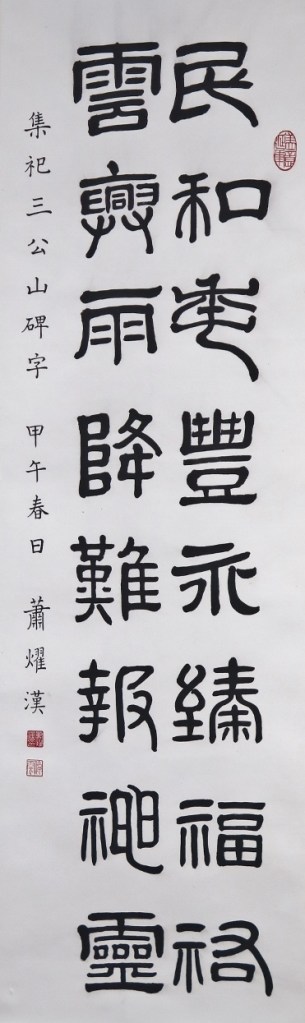 民和年豐永臻福祐
雲興雨降難報神靈
集祀三公山碑字 甲午春日 蕭燿漢